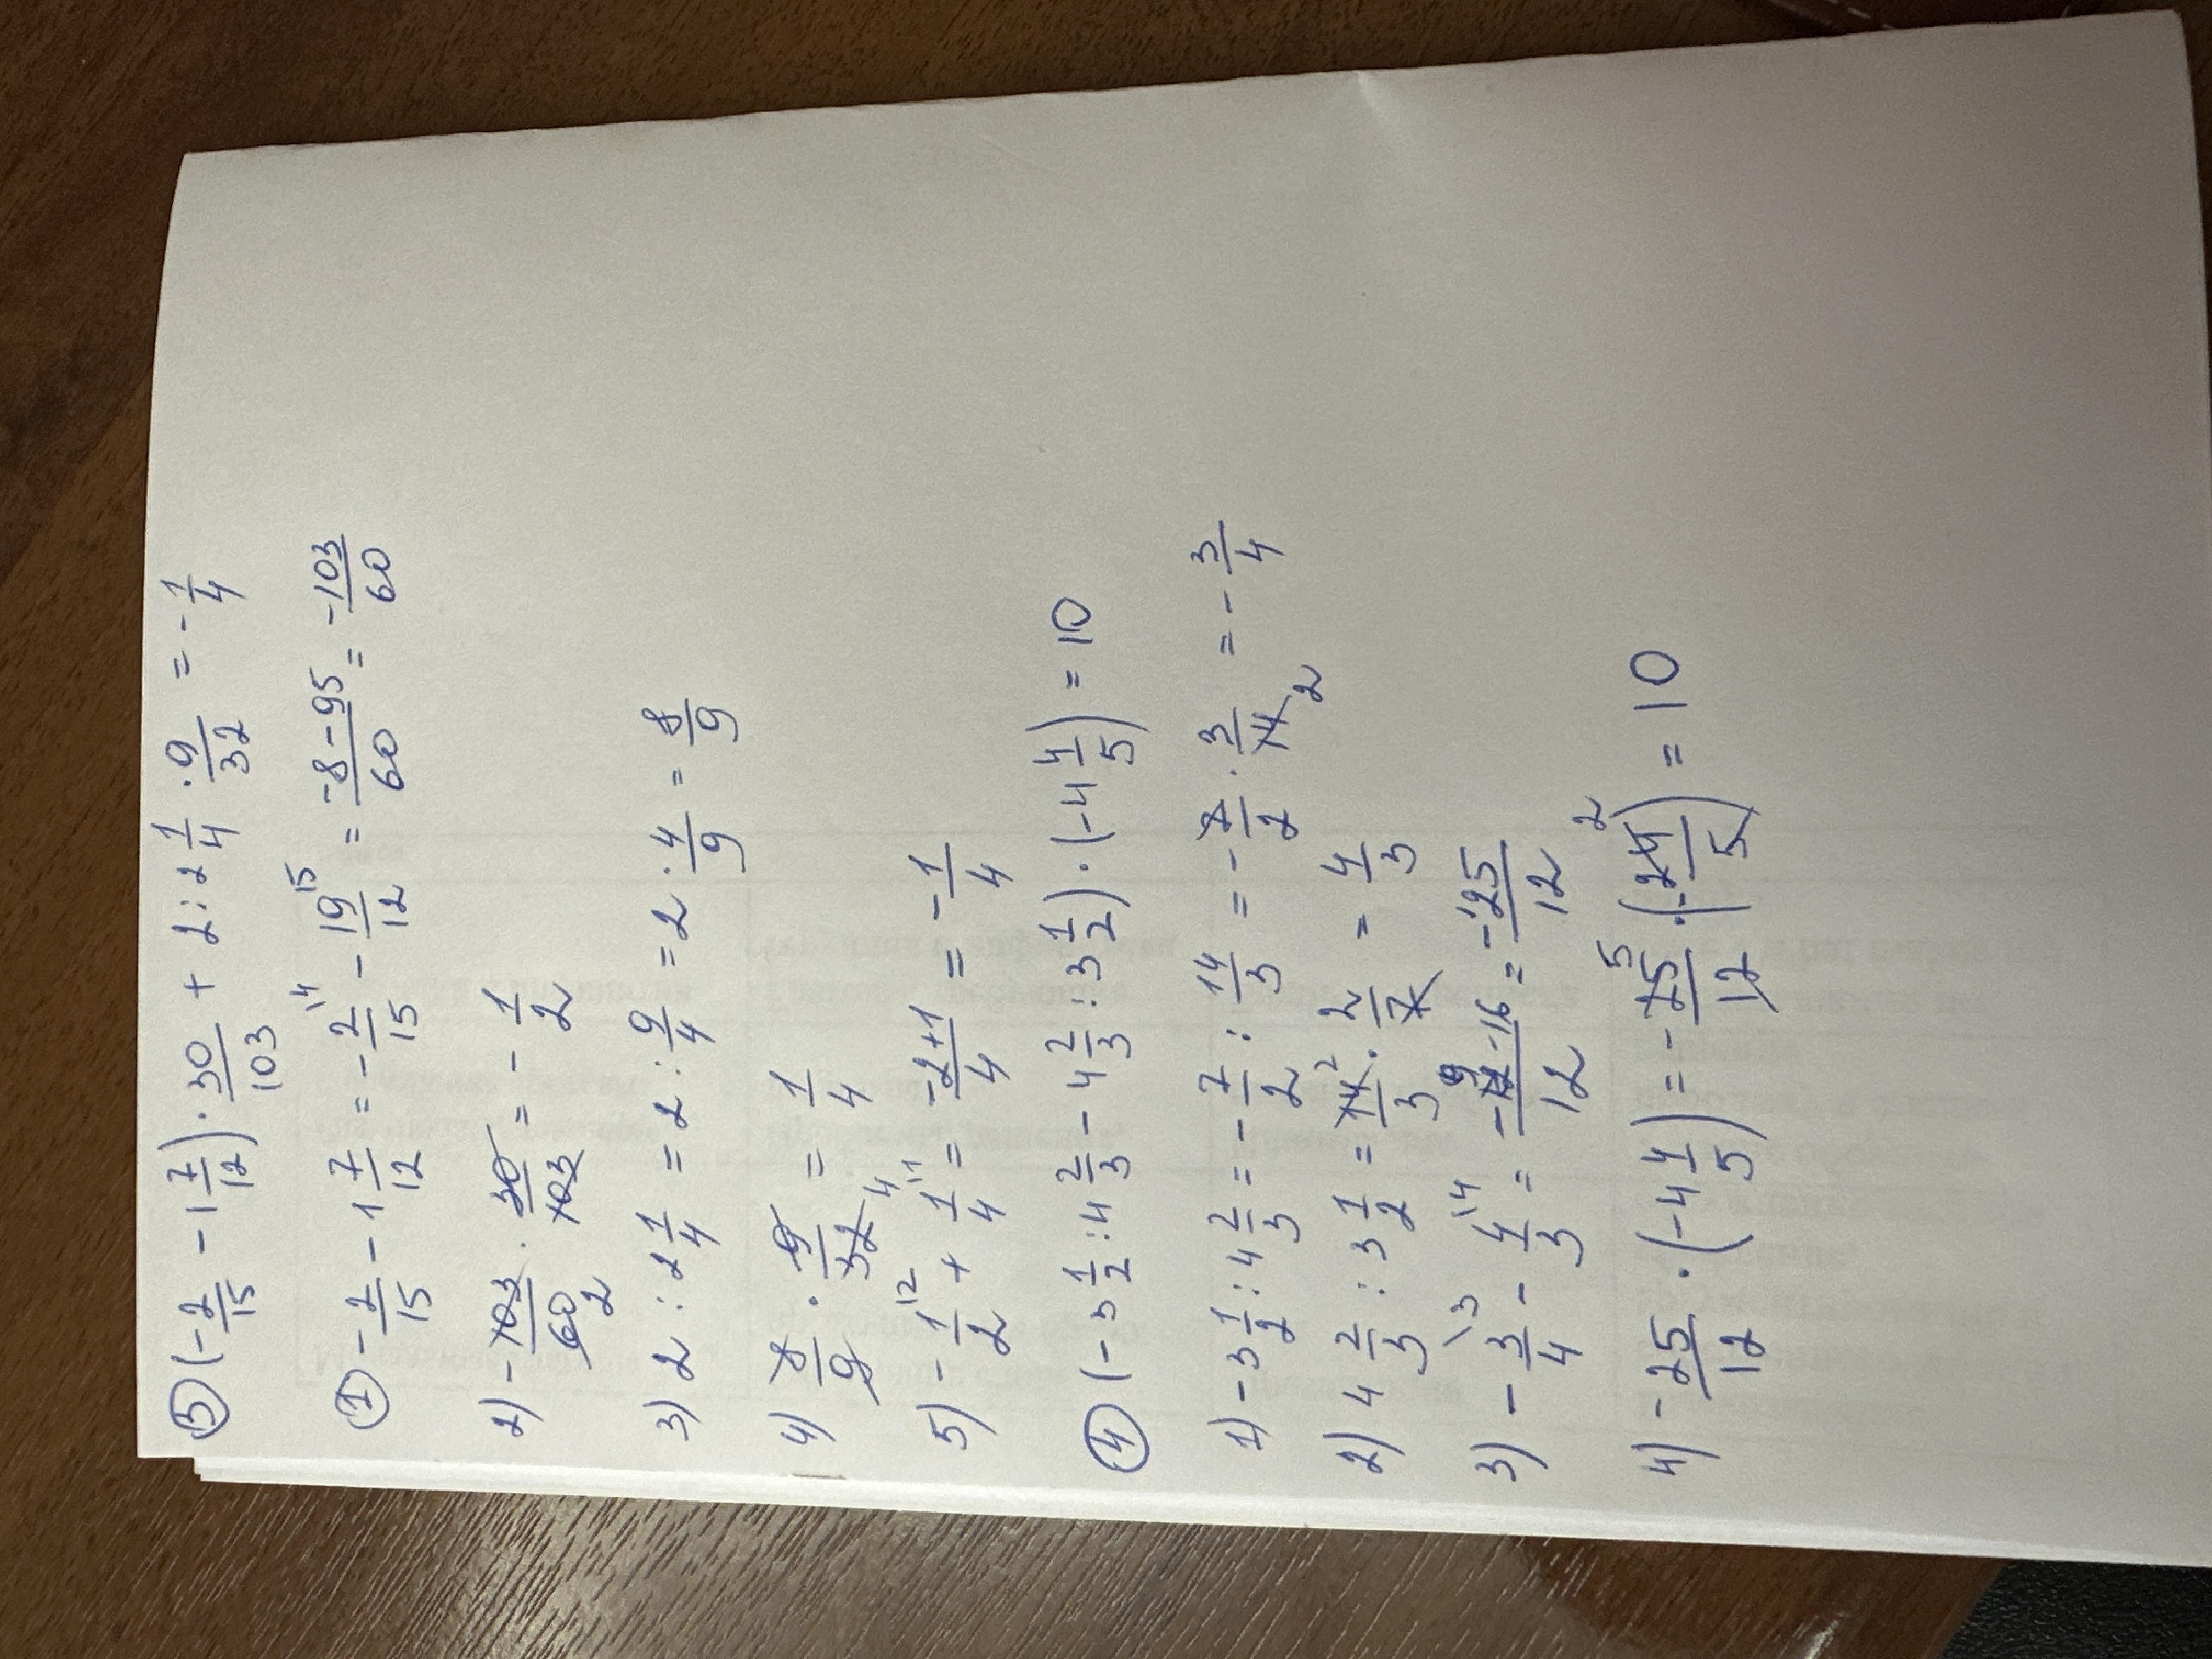 ③ (- 2/15 - 1 7/12) · 30/103 + 2 : 2 1/4 · 9/32 = - 1/4
① - 2/15 - 1 7/12 = - 2/15 \4 - 19/12 \5 = -8-95/60 = -103/60
2) - 103/60 2 · 30/103 = - 1/2
3) 2 : 2 1/4 = 2 : 9/4 = 2 · 4/9 = 8/9
4) 8/9 · 9/32 4 = 1/4
5) - 1/2 \2 + 1/4 \1 = -2+1/4 = - 1/4
④ (- 3 1/2 : 4 2/3 - 4 2/3 : 3 1/2) · (-4 4/5) = 10
1) - 3 1/2 : 4 2/3 = - 7/2 : 14/3 = - 7/2 · 3/14 2 = - 3/4
2) 4 2/3 : 3 1/2 = 14 2/3 · 2/7 = 4/3
3) - 3/4 \3 - 4/3 \4 = -9-16/12 = -25/12
4) - 25/12 · (-4 4/5) = - 25 5/12 · (-24 2/5) = 10